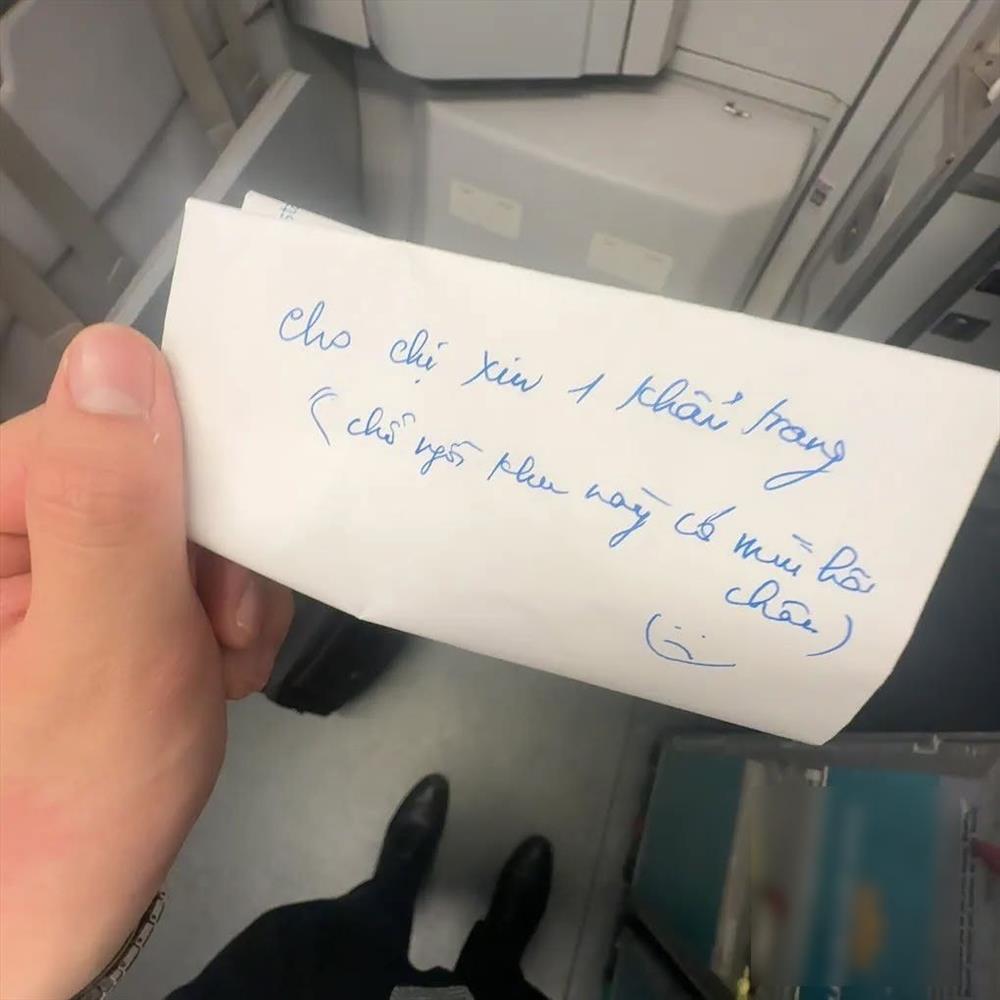 cho chị xin 1 khẩu trang
(chỗ ngồi khu này có mùi hôi
chân)